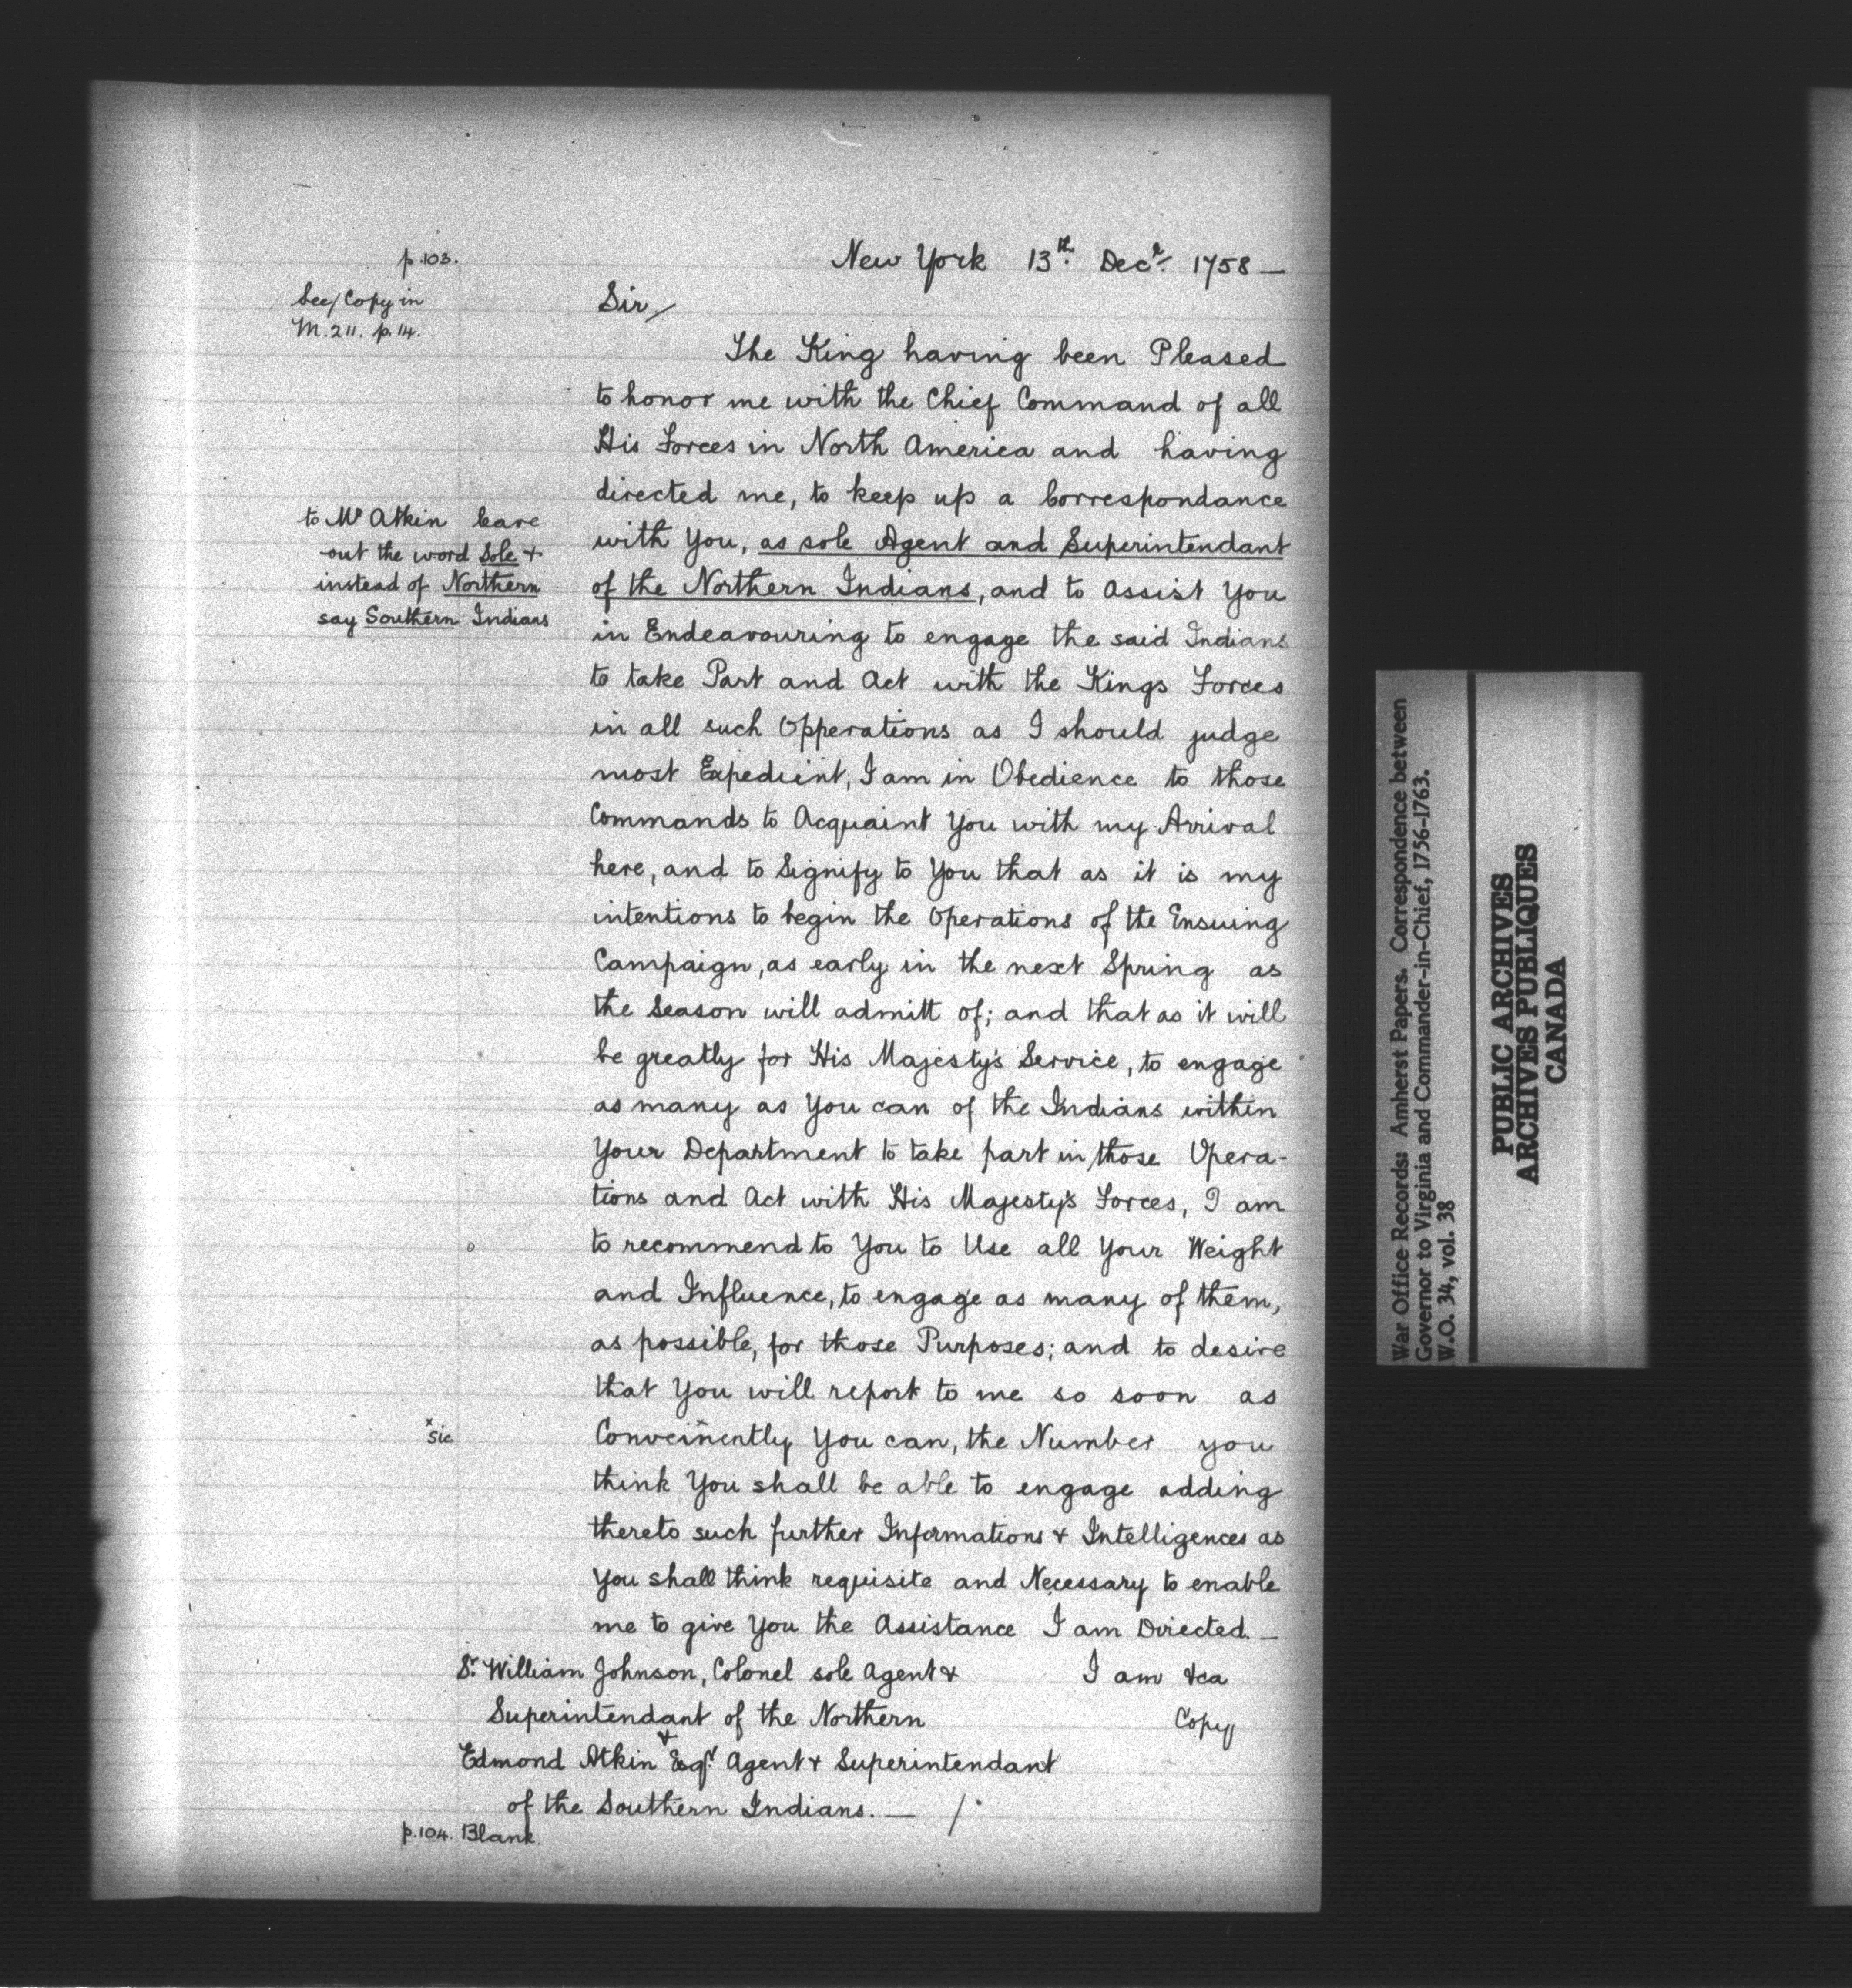 p.103.
New York 13th. Decr. 1758 —
See/Copy in
M. 211. p. 14.
Sir,
The King having been Pleased
to honor me with the Chief Command of all
His Forces in North America and having
directed me, to keep up a Correspondance
with You, as sole Agent and Superintendant
of the Northern Indians, and to Assist You
to Mr Atkin leave
out the word Sole +
instead of Northern
say Southern Indians
in Endeavouring to engage the said Indians
to take Part and Act with the Kings Forces
in all such Opperations as I should judge
most Expedient, I am in Obedience to those
Commands to Acquaint You with my Arrival
here, and to Signify to You that as it is my
intentions to begin the Operations of the Ensuing
Campaign, as early in the next Spring as
the Season will admitt of; and that as it will
be greatly for His Majesty's Service, to engage
as many as You can of the Indians within
Your Department to take part in those Opera-
tions and Act with His Majesty's Forces, I am
to recommend to You to Use all Your Weight
and Influence, to engage as many of them,
as possible, for those Purposes; and to desire
that You will report to me so soon as
x sic
Conveinently x You can, the Number you
think You shall be able to engage adding
thereto such further Informations + Intelligences as
You shall think requisite and Necessary to enable
me to give You the Assistance I am Directed. —
I am &ca
Sr. William Johnson, Colonel sole Agent +
Superintendant of the Northern
Copy
+
Edmond Atkin Esqr. Agent + Superintendant
of the Southern Indians. — /.
p.104. Blank.
War Office Records: Amherst Papers. Correspondence between
Governor to Virginia and Commander-in-Chief, 1756-1763.
W.O. 34, vol. 38
PUBLIC ARCHIVES
ARCHIVES PUBLIQUES
CANADA